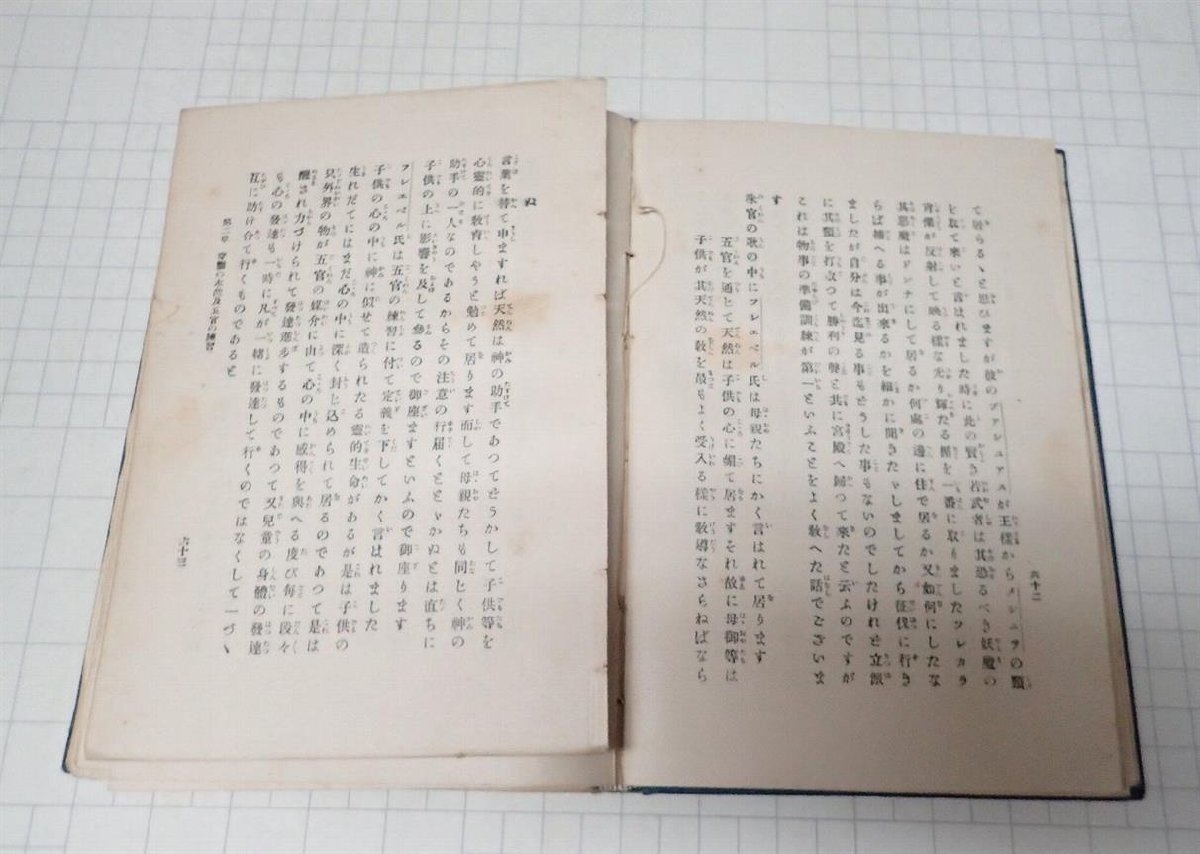 六十二
て居らるゝと思ひますが彼のプアシユアスが王樣からメシユラの頸
を取て來いと言はれました時に此の賢き若武者は其恐るべき妖魔の
肖像が反射して映る樣な光り輝たる楯を一番に取りましたソレカラ
其惡魔はドンナにして居るか何處の邊に住で居るか又如何にしたな
らば捕へる事が出來るかを細かに聞きたゞしましてから征伐に行き
ましたが自分は今迄見る事もさうした事もないのでしたけれど立派
に其頸を打立つて勝利の聲と共に宮殿へ歸つて來たと云ふのですが
これは物事の準備訓練が第一といふことをよく敎へた話でございま
す
味官の歌の中にフレエベル氏は母親たちにかく言はれて居ります
五官を通じて天然は子供の心に媚て居ますそれ故に母御等は
子供が其天然の敎を最もよく受入る樣に敎導なさらねばなら
ぬ
言葉を替て申ますれば天然は神の助手であつてどうかして子供等を
心靈的に敎育しやうと勉めて居ります而して母親たちも同じく神の
助手の一人なのであるからその注意の行届くとゞかぬとは直ちに
子供の上に影響を及して參るので御座ますといふので御座ります
フレエベル氏は五官の練習に付て定義を下してかく言はれました
子供の心の中に神に似せて造られたる靈的生命があるが是は子供の
生れだてにはまだ心の中に深く封じ込められて居るのであつて是は
只外界の物が五官の媒介に由て心の中に感得を與へる度び每に段々
醒され力づけられて發達進步するものであつて又兒童の身體の發達
も心の發達も一時に凡が一緖に發達して行くのではなくして一づゝ
互に助け合て行くものであると
第二章 穿鑿の本能及五官の練習
六十三